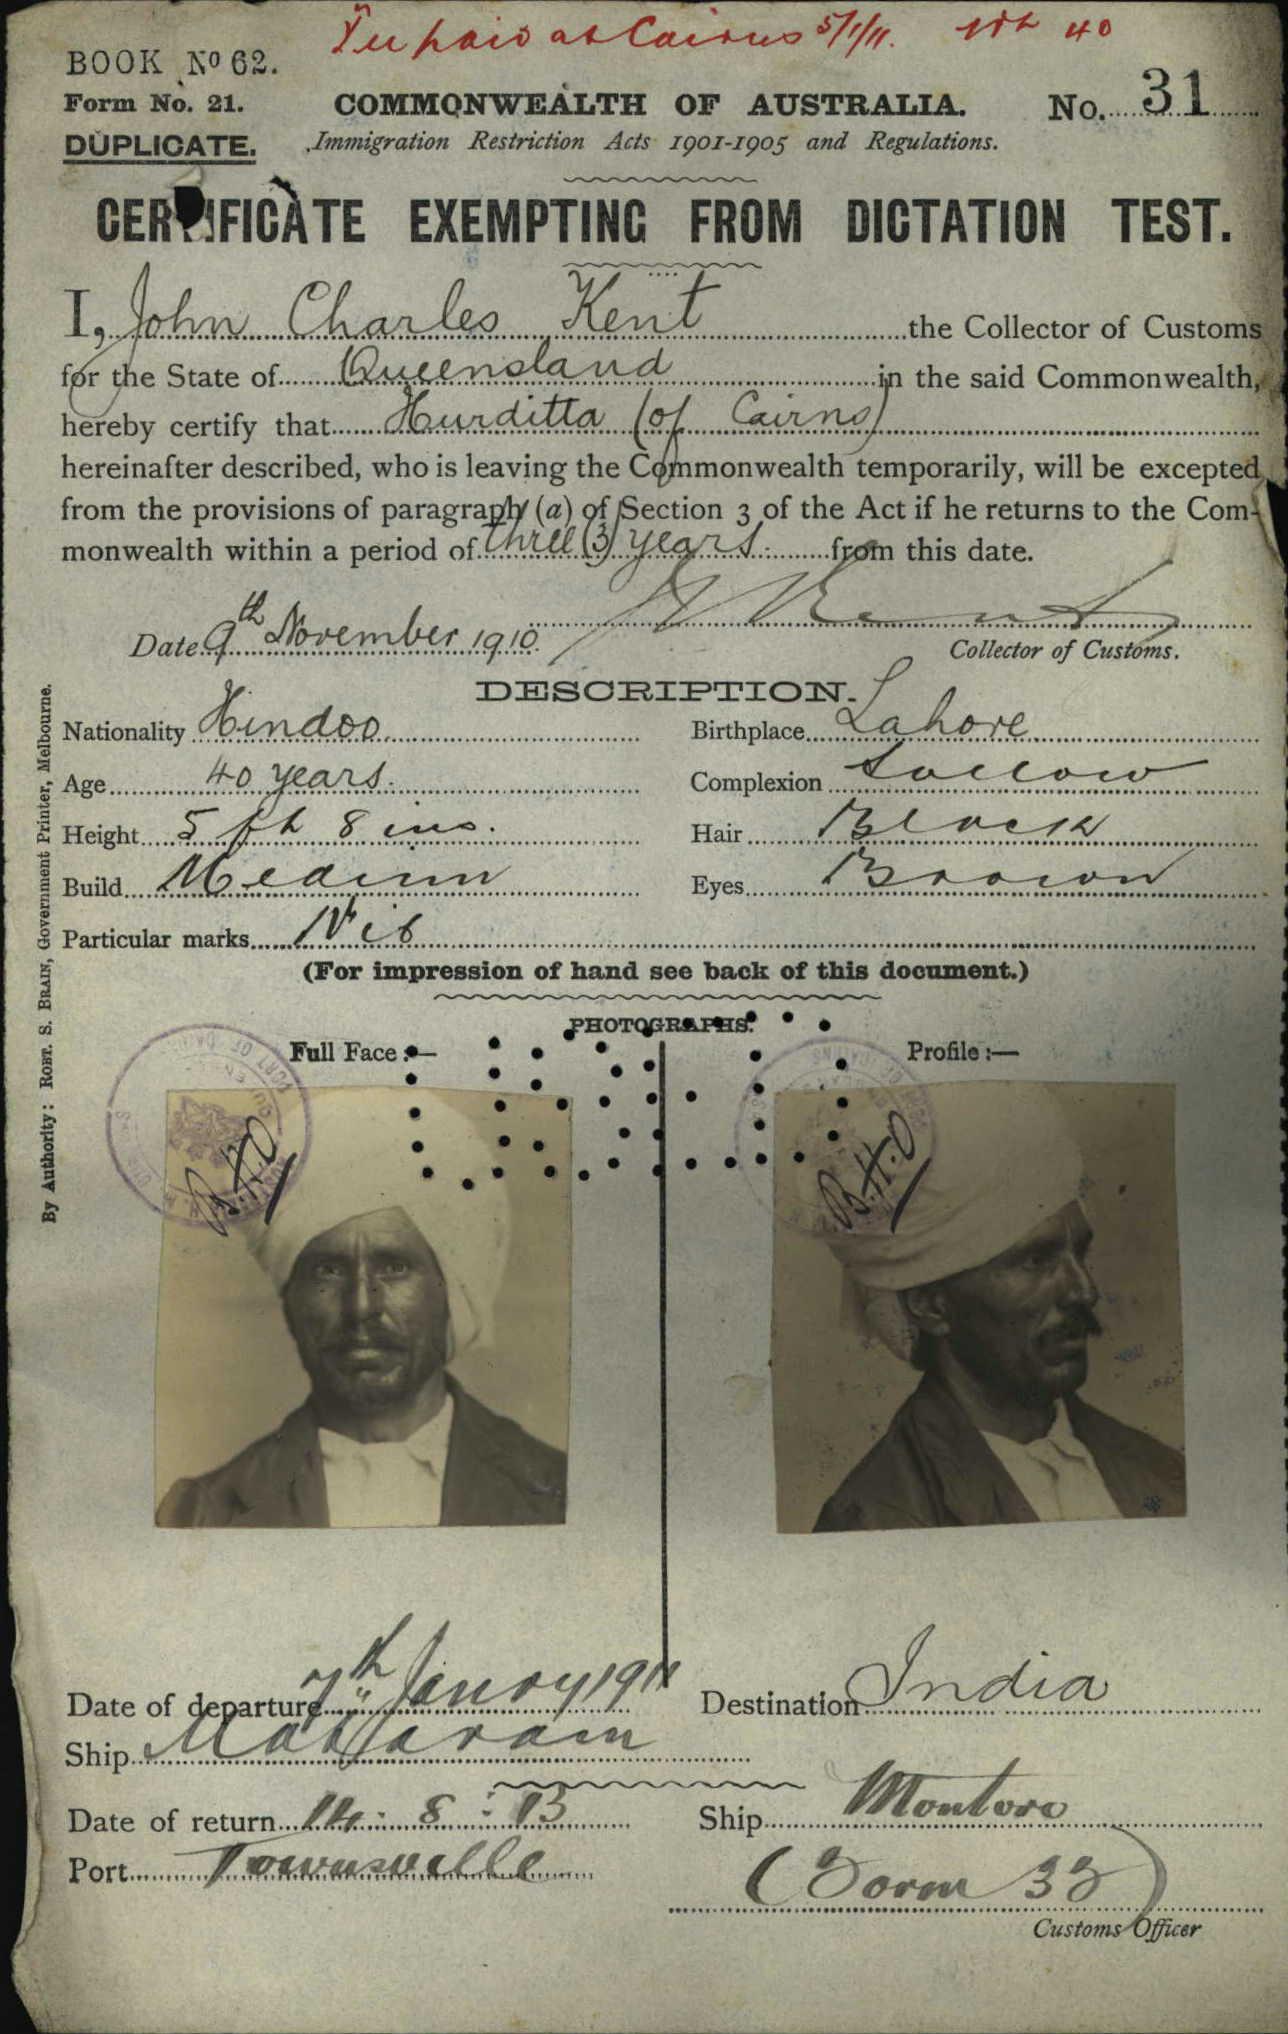 Fee paid at Cairns 5/1/11. No 40
BOOK No 62.
Form No. 21.
DUPLICATE.
COMMONWEALTH OF AUSTRALIA.
No. 31
Immigration Restriction Acts 1901-1905 and Regulations.
CERTIFICATE EXEMPTING FROM DICTATION TEST.
I, John Charles Kent the Collector of Customs
for the State of Queensland in the said Commonwealth,
hereby certify that Hurditta (of Cairns)
hereinafter described, who is leaving the Commonwealth temporarily, will be excepted
from the provisions of paragraph (a) of Section 3 of the Act if he returns to the Com-
monwealth within a period of three (3) years from this date.
Date 9th November 1910.
Collector of Customs.
DESCRIPTION.
Nationality Hindoo Birthplace Lahore
Age 40 years. Complexion Sallow
Height 5 ft 8 ins. Hair Black
Build Medium Eyes Brown
Particular marks Nil
(For impression of hand see back of this document.)
PHOTOGRAPHS.
Full Face :— Profile :—
B.H.O B.H.O
Date of departure 7th Janry 1911 Destination India
Ship Mataram
Date of return 14 . 8 . 13 Ship Montoro
Port Townsville
(Form 32)
Customs Officer
By Authority : ROBT. S. BRAIN, Government Printer, Melbourne.